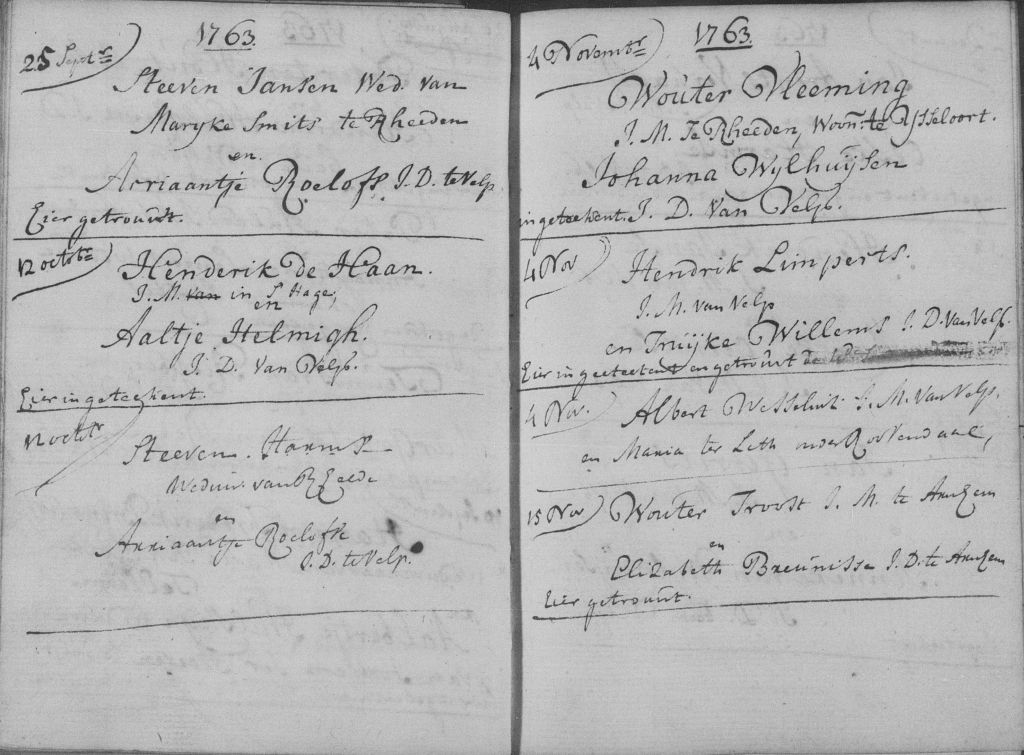 1763.
25 Septr
Steeven Jansen Wed. van
Maryke Smits te Rheeden
en.
Arriaantje Roelofs. J. D. te Velp
Eier getrouwt.
12 octbr
Henderik de Haan.
J. M. van in S Hage,
en
Aaltje Helmigh.
J. D. van Velp.
Eier in geteekent.
12 octbr
Steeven Harms
Weduw. van R
en
Arriaantje Roelofs
J. D. te Velp.
1763.
4 Novembr
Wouter Vleeming
J. M. Te Rheeden, Woon: te Ysseloort.
Johanna Wylhuysen
in geteekent. J. D. Van Velp.
4 Nov
Hendrik Limperts.
J. M. van Velp
en Truijke Willems J. D. van Velp.
Eier in geteekent en getrout
4 Nov.
Albert J. M. van Velp,
en Maria ter Leth onder Roosendaal,
15 Nov
Wouter Troost J. M. te Arnhem
en
Elizabeth Breunisse J. D. te Arnhem
Eier getrouwt.